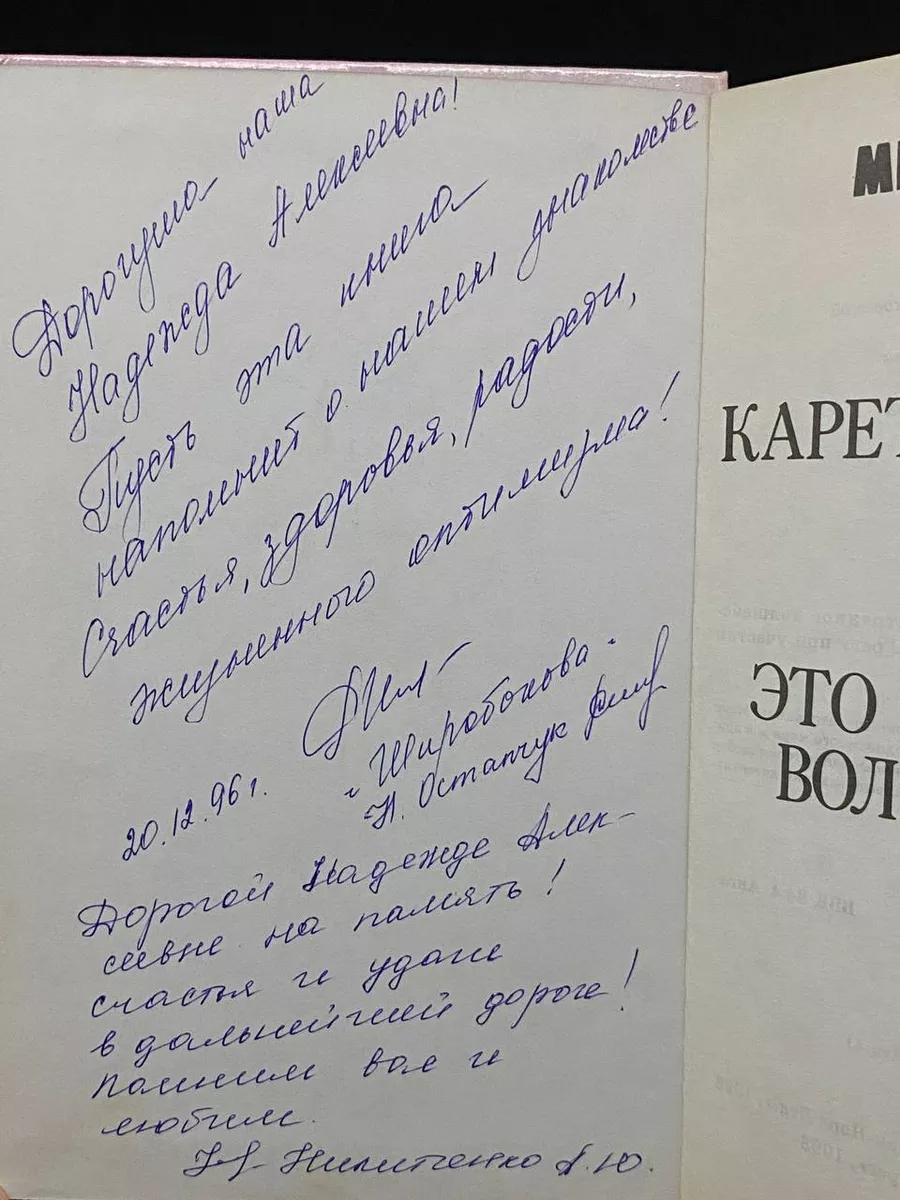 Дорогуша наша
Надежда Алексеевна!
Пусть эта книга
напомнит о нашем знакомстве
Счастья, здоровья, радости,
жизненного оптимизма!
"Широбокова"
Н. Остапчук
20.12.96 г.
Дорогой Надежде Алек-
сеевне на память!
счастья и удачи
в дальнейшей дороге!
помним вас и
любим.
А.Ю.
КАРЕТ
ЭТО
ВОЛ